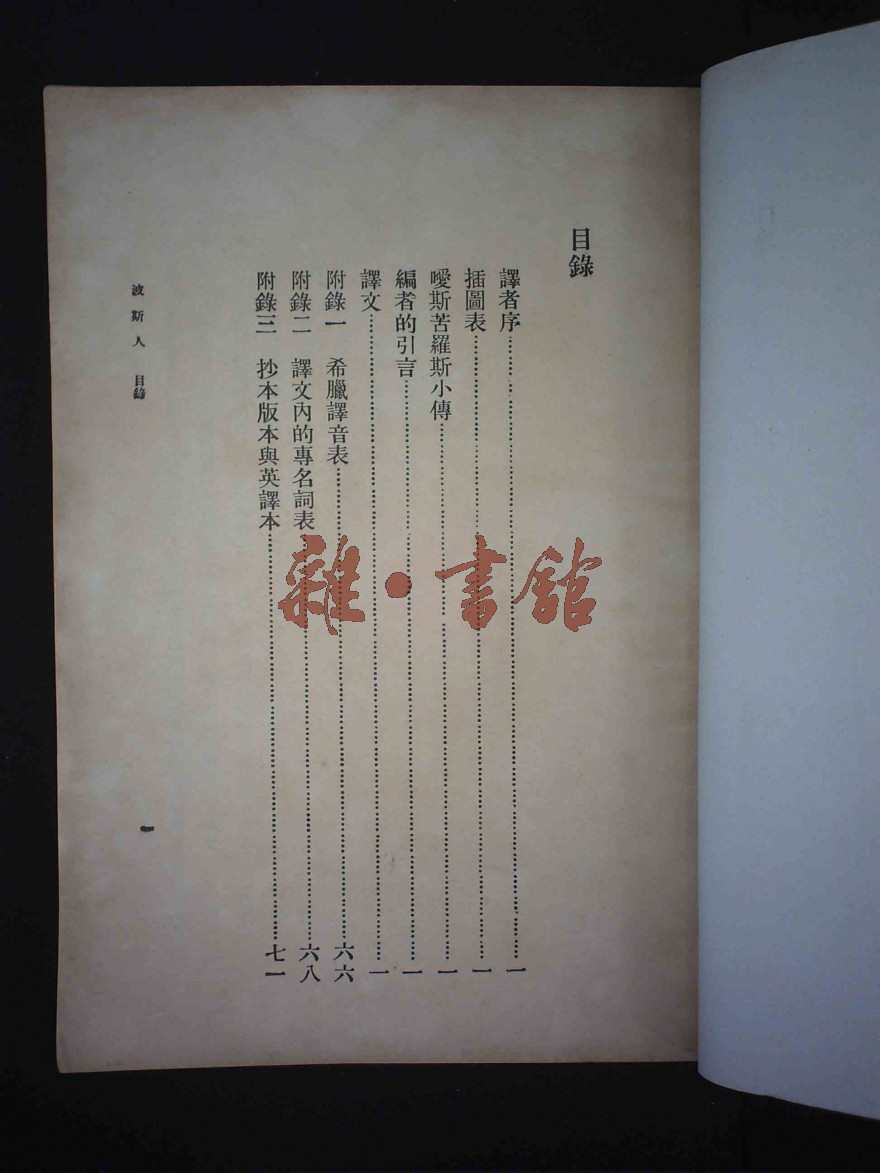 目錄
譯者序……一
插圖表……一
噯斯苦羅斯小傳……一
編者的引言……一
譯文……一
附錄一 希臘譯音表……六六
附錄二 譯文內的專名詞表……六八
附錄三 抄本版本與英譯本……七一
波斯人 目錄
一
雜·書館